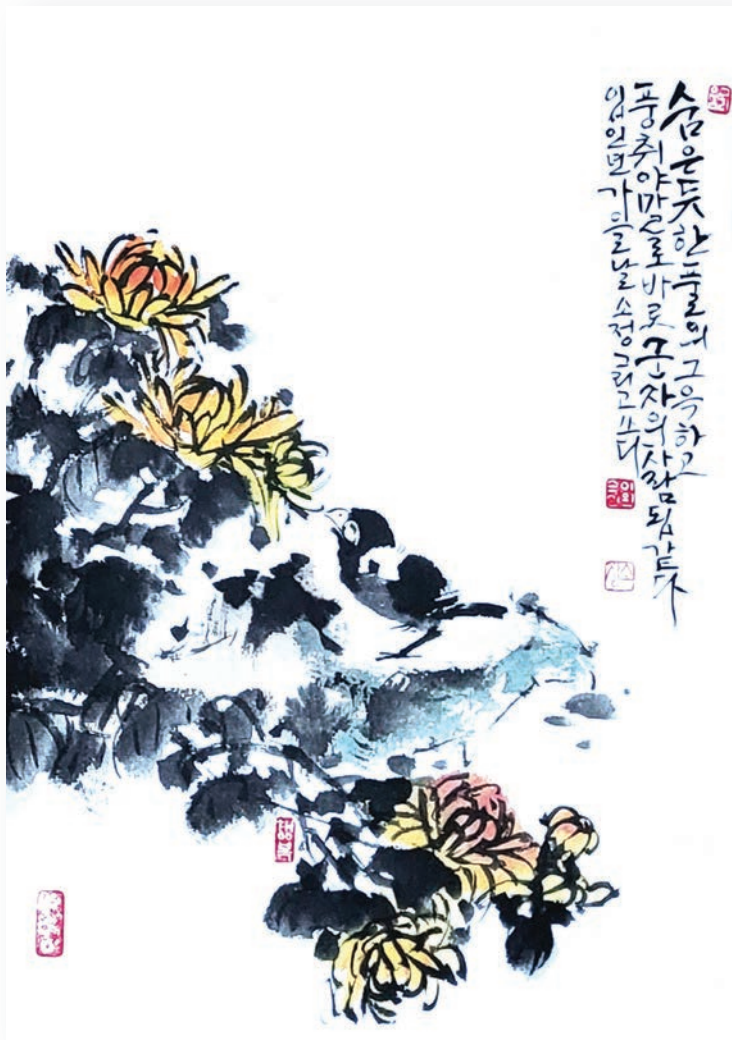 숨은듯한 풀의 그윽하고
풍취야말로 바로 군자의 사람됨 같다
임인년 가을날 소정 그리고 쓰다